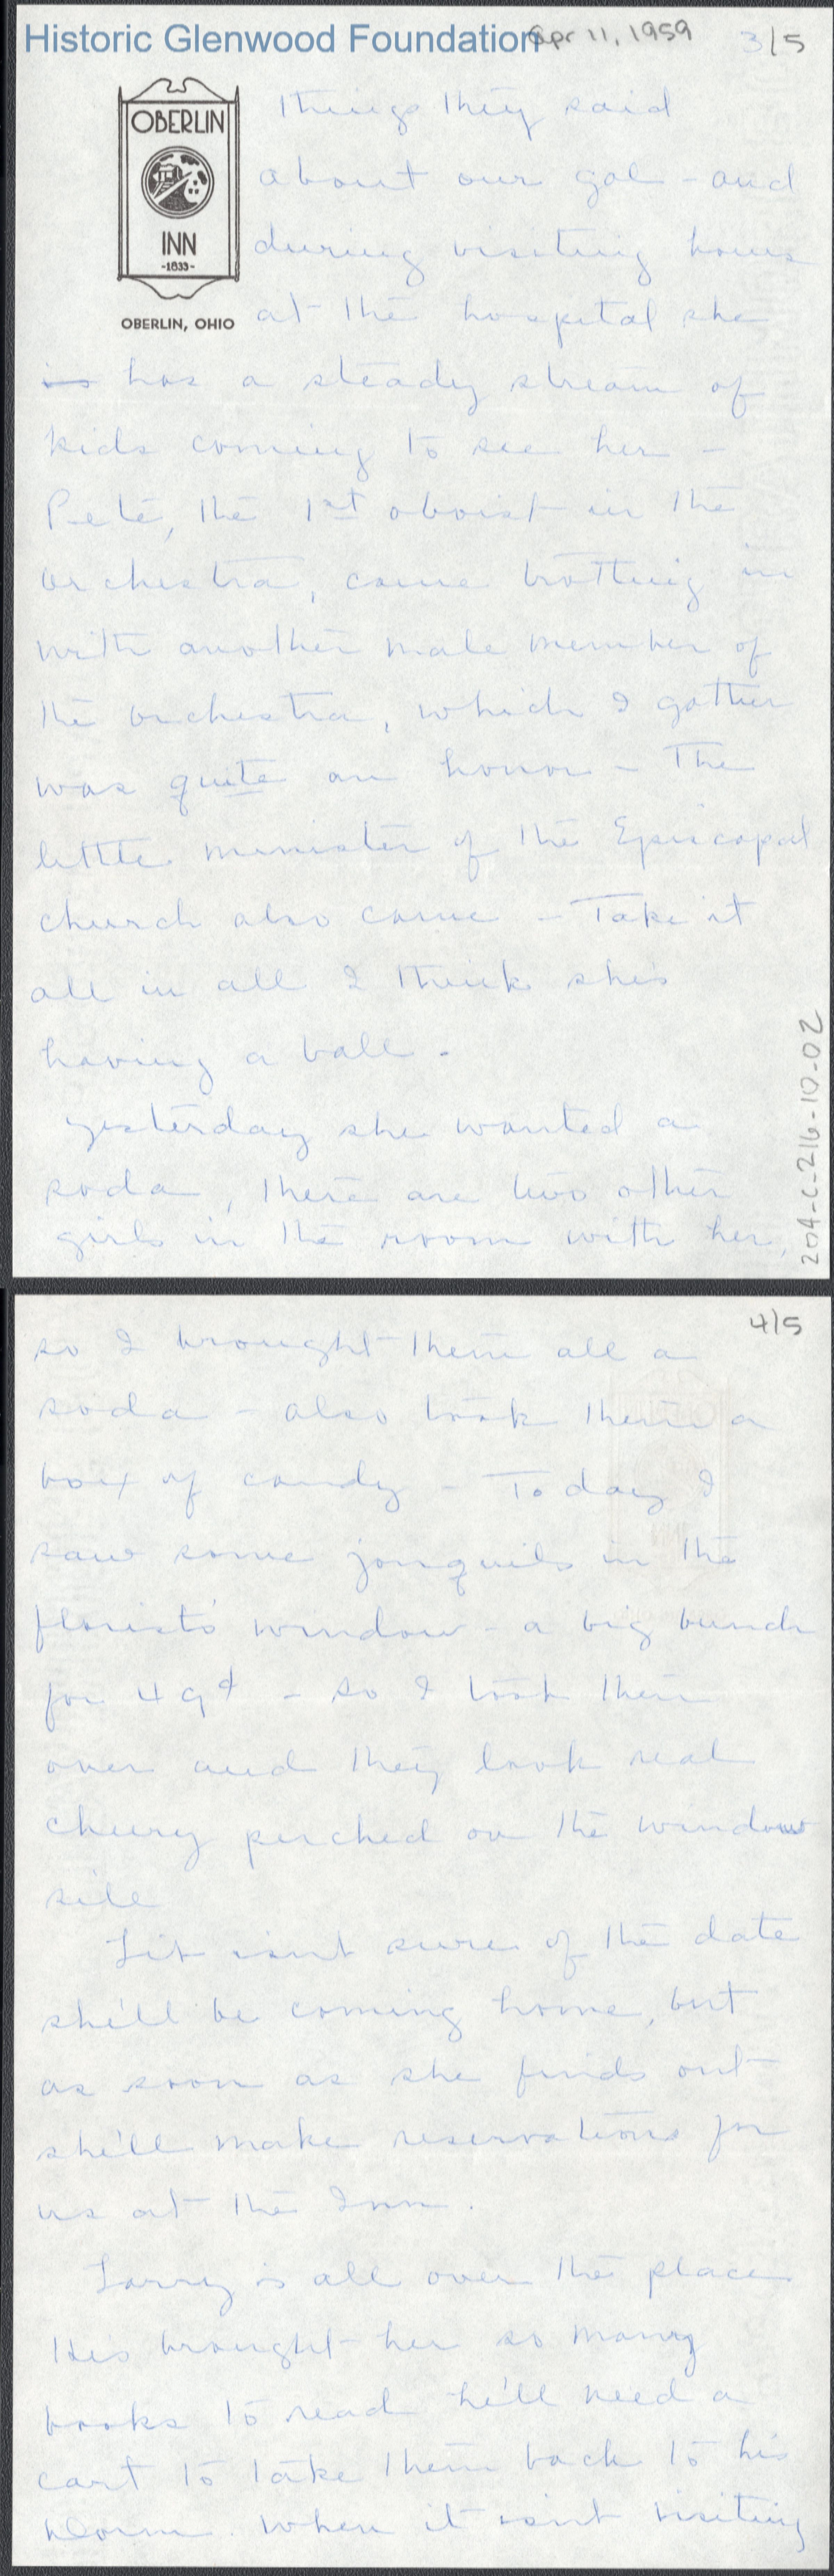 Historic Glenwood Foundation
Apr 11, 1959
3/5
OBERLIN
INN
-1833-
OBERLIN, OHIO
things they said
about our gal - and
during visiting hours
at the hospital she
is has a steady stream of
kids coming to see her -
Pete, the 1st oboist in the
orchestra, came trotting in
with another male member of
the orchestra, which I gather
was quite an honor - The
little minister of the Episcopal
church also came - Take it
all in all I think she's
having a ball.
Yesterday she wanted a
soda, there are two other
girls in the room with her,
204-C-216-10-02
4/5
so I brought them all a
soda - also took them a
box of candy - Today I
saw some jonquils in the
florists' window - a big bunch
for 49¢ - so I took them
over and they look real
cheery perched on the window
sill
Lit isn't sure of the date
she'll be coming home, but
as soon as she finds out
she'll make reservations for
us at the Inn.
Larry is all over the place
He's brought her so many
books to read he'll need a
cart to take them back to his
dorm. When it isn't visiting